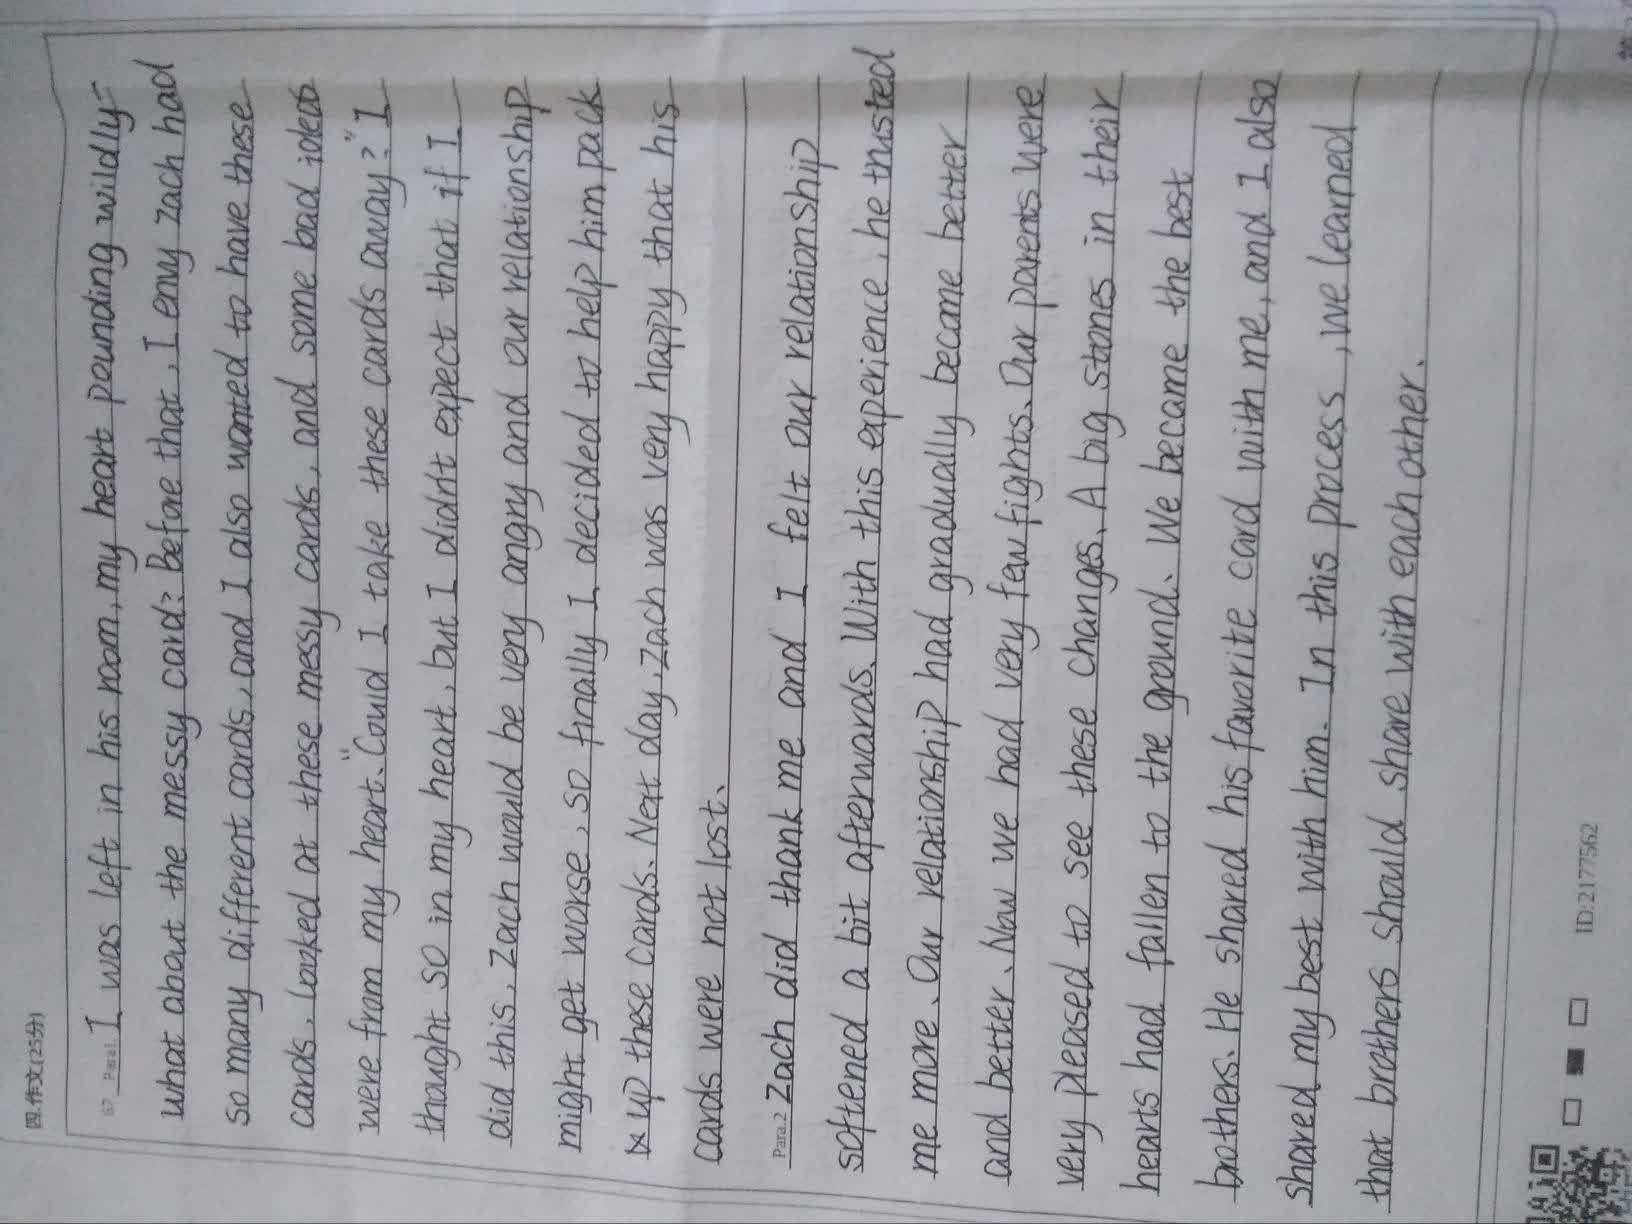 四.作文(25分)
67. Para1. I was left in his room, my heart pounding wildly-
what about the messy card? Before that, I envy Zach had
so many different cards, and I also wanted to have these
cards. Looked at these messy cards, and some bad ideas
were from my heart. "Coud I take these cards away?" I
thought so in my heart, but I didn't expect that if I
did this, Zach would be very angry and our relationship
might get worse, so finally I decided to help him pack
up these cards. Next day, Zach was very happy that his
cards were not lost.
Para.2 Zach did thank me and I felt our relationship
softened a bit afterwards. With this experience, he trusted
me more. Our relationship had gradually become better
and better. Now we had very few fights. Our parents were
very pleased to see these changes. A big stones in their
hearts had fallen to the ground. We became the best
brothers. He shared his favorite card with me, and I also
shared my best with him. In this process, we learned
that brothers should share with each other.
ID:2177562